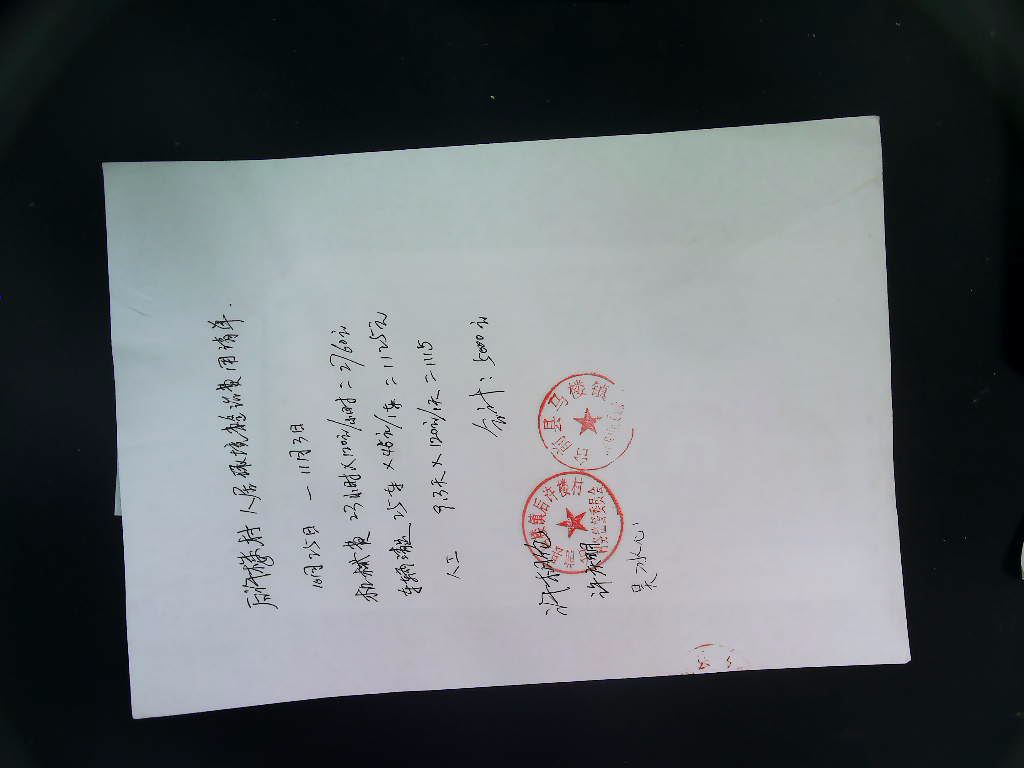 后许楼村人居环境整治费用清单.
10月25日 — 11月3日
机械费 23小时×120元/小时=2760元
车辆清运 25车×45元/1车=1125元
人工 9.3天×120元/1天=1115
合计: 5000元
许
许
吴水心
县马楼镇
楼镇后许楼村
村务监督委员会